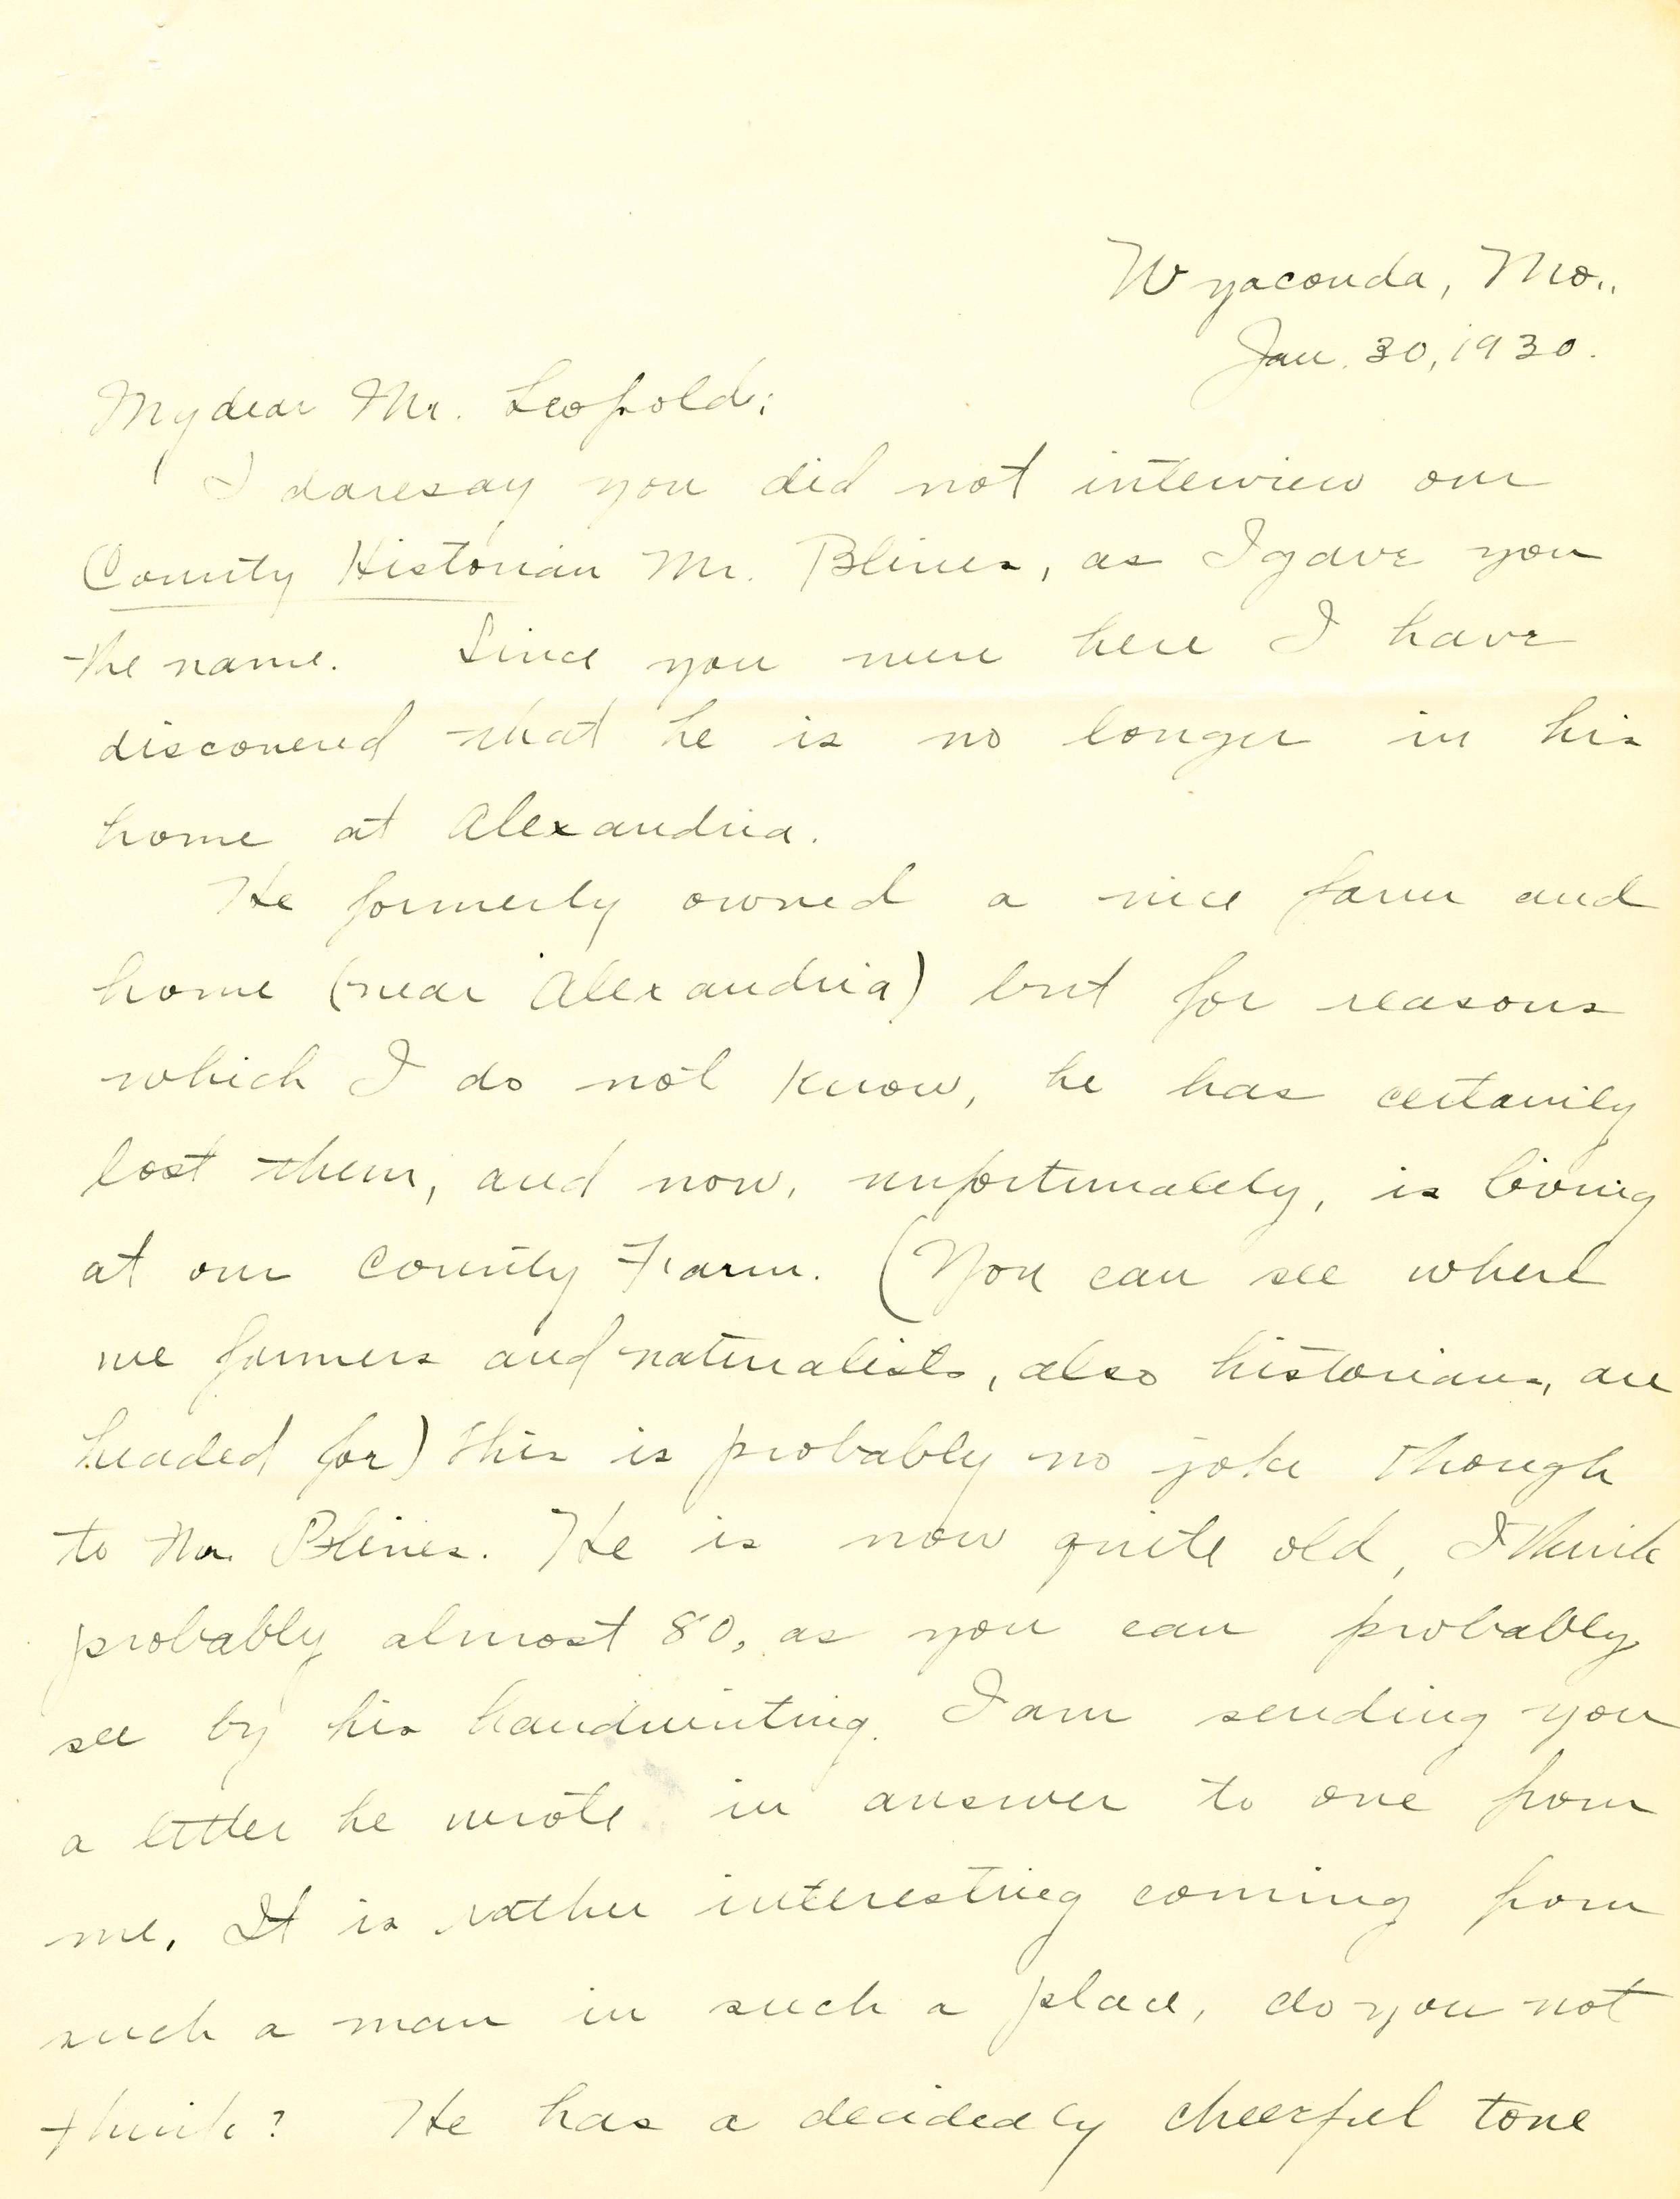 Wyaconda, Mo.,
Jan. 30, 1930.
My dear Mr. Leopold;
I daresay you did not interview our
County Historian Mr. Blines, as I gave you
the name. Since you were here I have
discovered that he is no longer in his
home at Alexandria.
He formerly owned a nice farm and
home (near Alexandria) but for reasons
which I do not know, he has certainly
lost them, and now, unfortunately, is living
at our County Farm. (You can see where
we farmers and naturalists, also historians, are
headed for) this is probably no joke though
to Mr. Blines. He is now quite old, I think
probably almost 80, as you can probably
see by his handwriting. I am sending you
a letter he wrote in answer to one from
me. It is rather interesting coming from
such a man in such a place, do you not
think? He has a decidedly cheerful tone